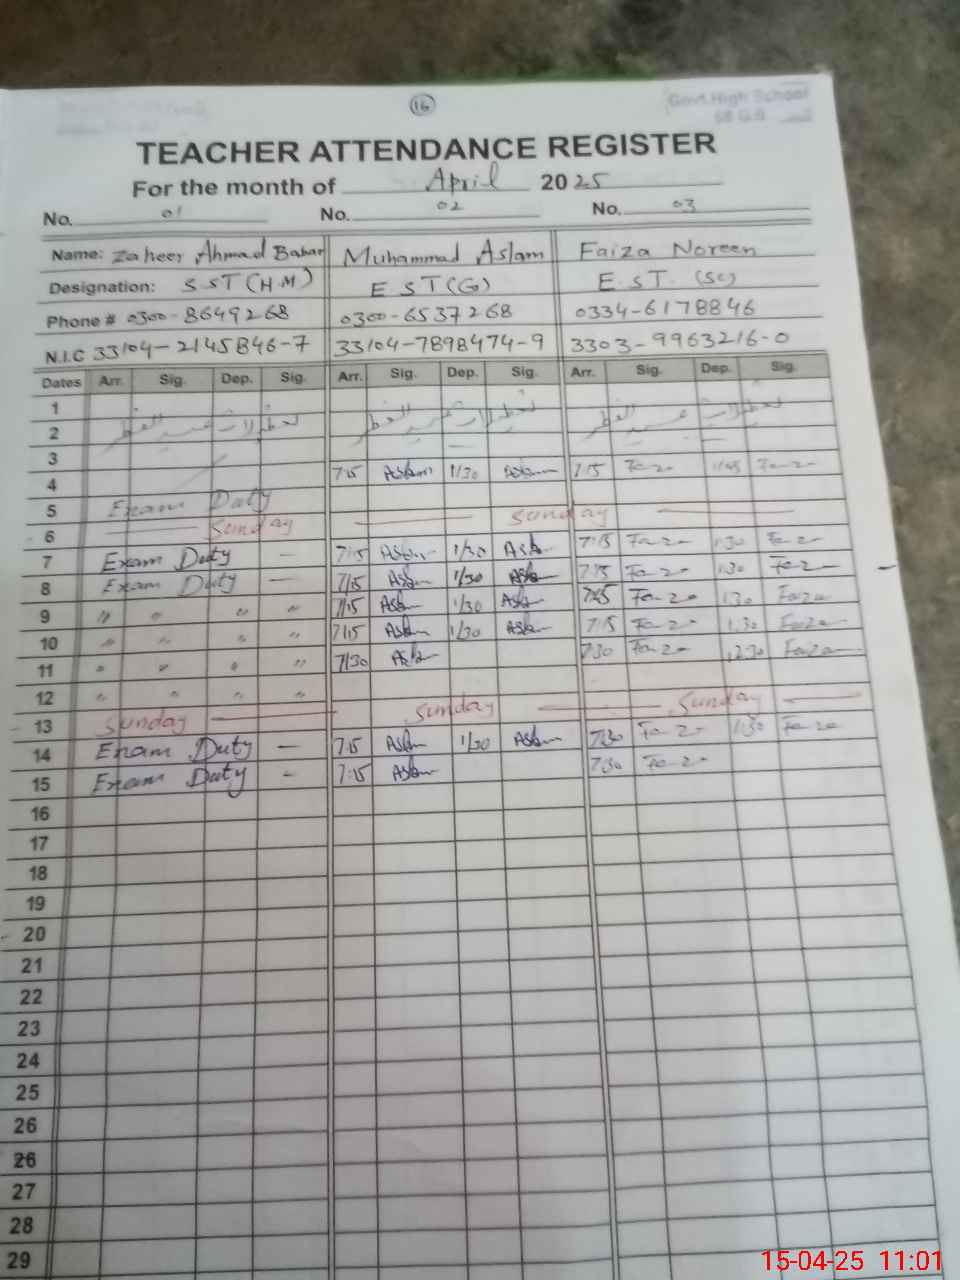 16
Govt. High School
68 G.B
TEACHER ATTENDANCE REGISTER
For the month of April 2025
No. 01 No. 02 No. 03
Name: Zaheer Ahmad Babar Muhammad Aslam Faiza Noreen
Designation: SST (H.M) EST (G) E.S.T. (SC)
Phone # 0300-8649268 0300-6537268 0334-6178846
N.I.C 33104-2145846-7 33104-7898474-9 3303-9963216-0
Dates Arr. Sig. Dep. Sig. Arr. Sig. Dep. Sig. Arr. Sig. Dep. Sig.
1
2 تعطیلات عید الفطر تعطیلات عید الفطر تعطیلات عید الفطر
3
4 7:15 Aslam 1/30 Aslam 7:15 1:45
5 Exam Duty
6 Sunday Sunday
7 Exam Duty — 7:15 Aslam 1/30 Aslam 7:15 1:30
8 Exam Duty — 7/15 Aslam 1/30 Aslam 7:15 1:30
9 " " " " 7/15 Aslam 1/30 Aslam 1:30 Faiza
10 " " " " 7/15 Aslam 1/30 Aslam 7:15 1:30 Faiza
11 " " " " 7/30 Aslam 7:30 12:30 Faiza
12 " " " "
13 Sunday Sunday Sunday
14 Exam Duty — 7:15 Aslam 1/30 Aslam 7:30 1:30
15 Exam Duty — 7:15 Aslam 7:30
16
17
18
19
20
21
22
23
24
25
26
26
27
28
29
15-04-25 11:01